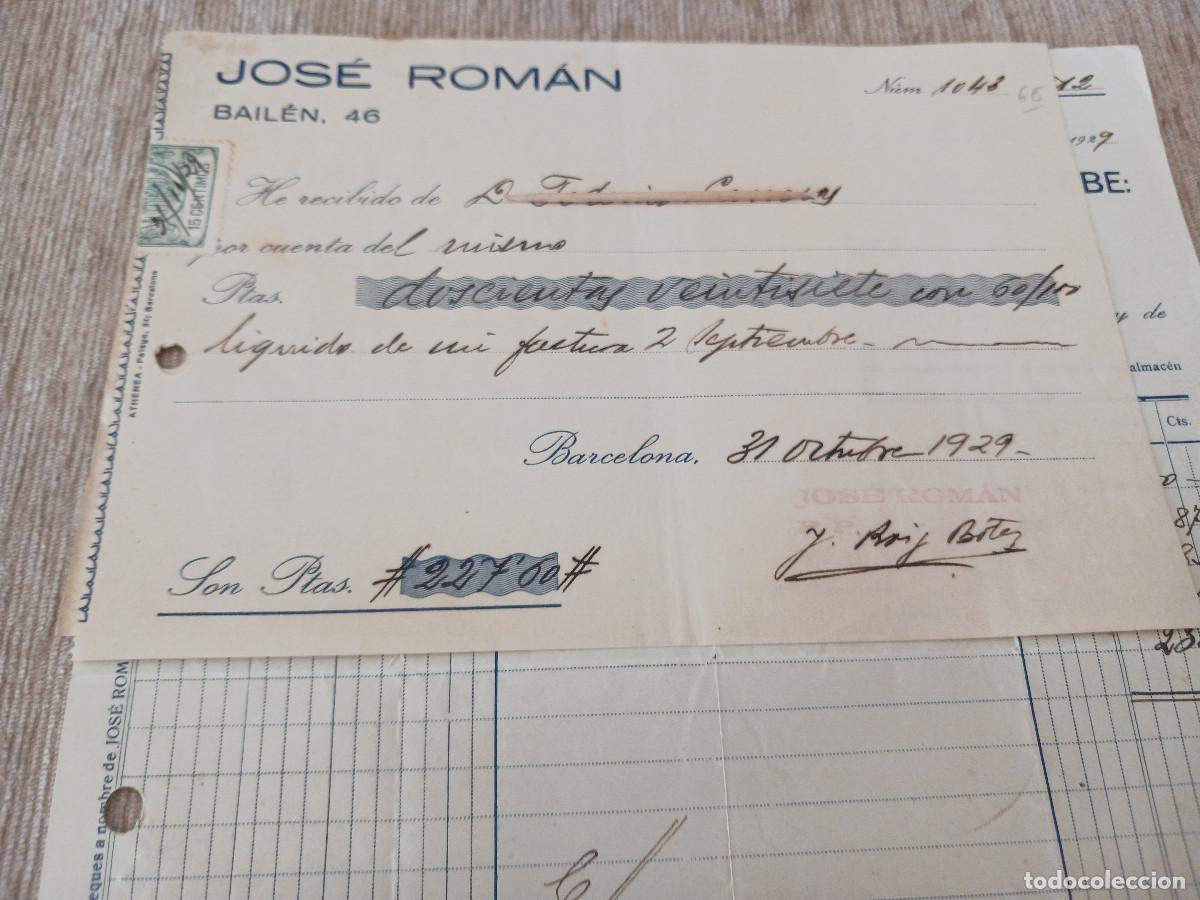 JOSÉ ROMÁN
BAILÉN, 46
Núm. 1043
66
15 CÉNTIMOS
31/10/29
He recibido de D.
por cuenta del mismo
Ptas. doscientas veintisiete con 60/100
líquido de mi factura 2 Septiembre.
Barcelona, 31 Octubre 1929.
JOSÉ ROMÁN
P. P.
Son Ptas. #227'60#
ATHENEA
Barcelona
12
1929
BE:
y de
almacén
Cts.
87
eques a nombre de JOSÉ ROM
todocoleccion